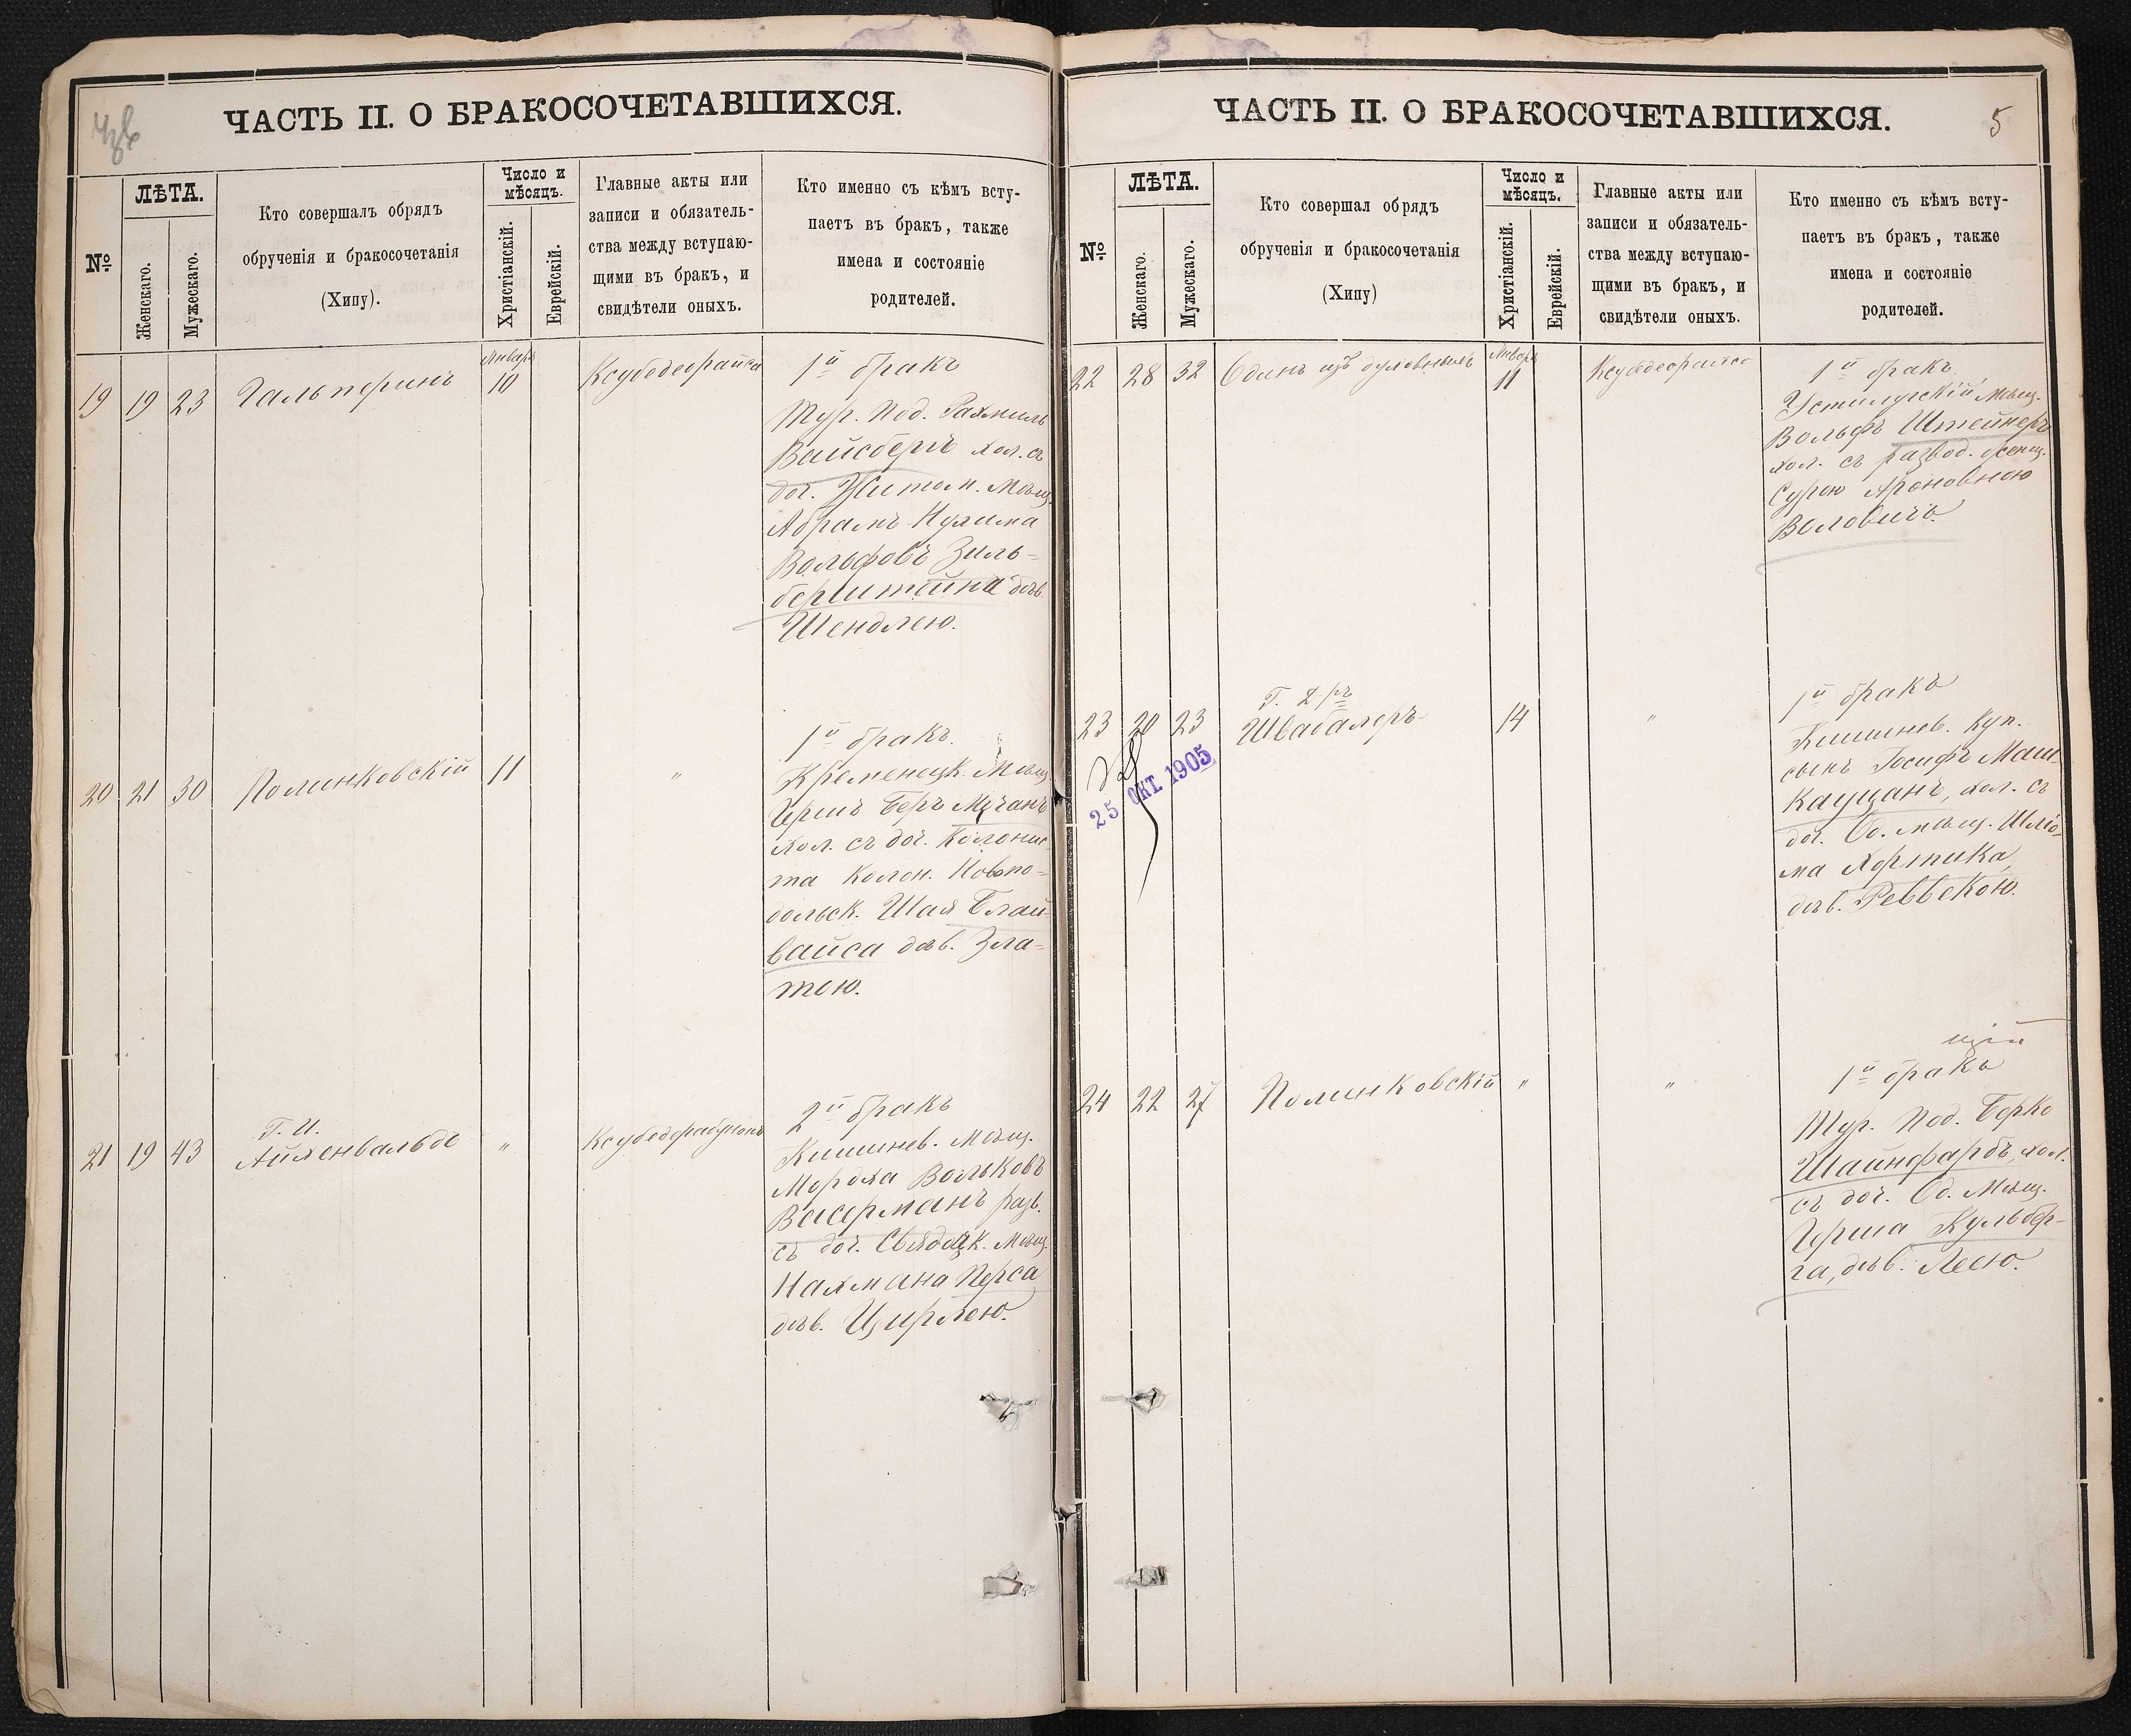 ЧАСТЬ II. О БРАКОСОЧЕТАВШИХСЯ.
№
ЛѢТА.
Женскаго.
Мужескаго.
Кто совершалъ обрядъ
обрученія и бракосочетанія
(Хипу).
Число и
мѣсяцъ.
Христіанскій.
Еврейскій.
Главные акты или
записи и обязатель-
ства между вступаю-
щими въ бракъ, и
свидѣтели оныхъ.
Кто именно съ кѣмъ всту-
паетъ въ бракъ, также
имена и состояніе
родителей.
19 19 23 Гальперинъ Января 10 Ксубедеорайса
1й бракъ
Тур. Под. Рахмиль
Вайсбергъ хол. съ
доч. Житом. Мѣщ.
Абрамъ Нухима
Вольфовъ Зиль-
берштейна дѣв.
Шендлею.
20 21 30 Полинковскій 11 "
1й бракъ.
Кременецк. Мѣщ.
Гершъ Беръ
хол. съ доч. Колонис-
та Колон. Новопо-
дольск. Шая Блай-
вайса дѣв. Зла-
тою.
21 19 43 Г. И.
Айхенвальдъ " Ксубедерабунонъ
2й бракъ
Кишинев. Мѣщ.
Мордха Вольковъ
Васерманъ разв.
съ доч. Мѣщ.
Нахмана Перса
дѣв. Цирлею.
ЧАСТЬ II. О БРАКОСОЧЕТАВШИХСЯ.
5
№
ЛѢТА.
Женскаго.
Мужескаго.
Кто совершал обрядъ
обрученія и бракосочетанія
(Хипу)
Число и
мѣсяцъ.
Христіанскій.
Еврейскій.
Главные акты или
записи и обязатель-
ства между вступаю-
щими въ бракъ, и
свидѣтели оныхъ.
Кто именно съ кѣмъ всту-
паетъ въ бракъ, также
имена и состояніе
родителей.
22 28 32 Одинъ изъ духовныхъ Января 11 Ксубедеорайса
1й бракъ.
Устилугскій мѣщ.
Вольфъ Штейнеръ
хол. съ развод. женщ.
Сурою Ароновною
Воловичъ.
23 20 23 Г. Д-ръ
Швабахеръ 14 "
25 ОКТ. 1905
1й бракъ
Кишинев. Куп.
сынъ Іосифъ Маш.
Каущанъ, хол. съ
доч. Од. мѣщ. Шліо-
ма Хортика,
дѣв. Реввекою.
24 22 27 Полинковскій " "
1й бракъ
Тур. Под. Берко
Шайнфарбъ, хол.
съ доч. Од. Мѣщ.
Герша Кульбер-
га, дѣв. Леею.